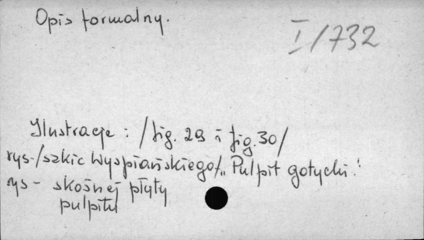 Opis formalny.
I/732
Ilustracje : /fig. 29 i fig. 30/
rys-/szkic Wyspiańskiego/,,Pulpit gotycki."
rys - skośnej płyty
pulpitu